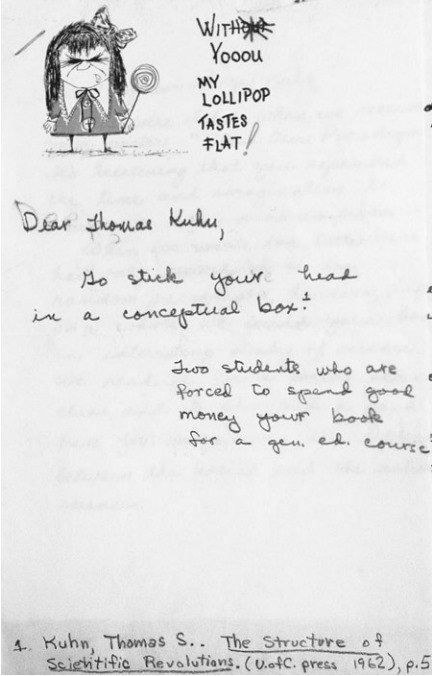 WITHOUT
YOOOU
MY
LOLLIPOP
TASTES
FLAT!
Dear Thomas Kuhn,
Go stick your head
in a conceptual box.¹
Two students who are
forced to spend good
money your book
for a gen. ed. course
1. Kuhn, Thomas S.. The Structure of
Scientific Revolutions. (U.ofC. press 1962), p.5